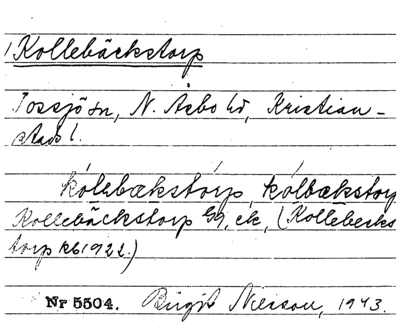 Kollebäckstorp
Tossjö sn, N. Åsbo hd, Kristian-
stads l.
kolebækstorp, kolbækstorp
Kollebäckstorp Gg, ek, (Kollebecks
torp kb 1922.)
Nr 5504. Birgit Nilsson, 1943.